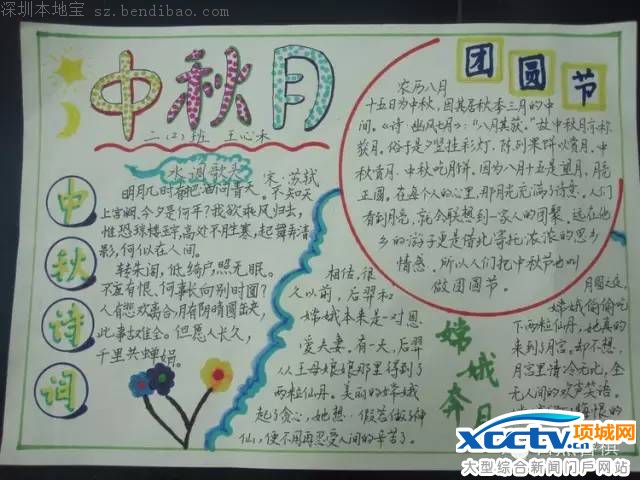 深圳本地宝 sz.bendibao.com
中秋月
二(2)班 王心未
水调歌头 宋·苏轼
明月几时有把酒问青天。不知天
上宫阙,今夕是何年?我欲乘风归去,
惟恐琼楼玉宇,高处不胜寒,起舞弄清
影,何似在人间。
转朱阁,低绮户照无眠。
不应有恨,何事长向别时圆?
人有悲欢离合,月有阴晴圆缺,
此事古难全。但愿人长久,
千里共婵娟。
中
秋
诗
词
团圆节
农历八月
十五日为中秋,因其居秋季三月的中
间。《诗·豳风七月》:"八月其获。"故中秋月亦称
获月。俗于是夕竖挂彩灯,陈列果饼以赏月。中
秋赏月、中秋吃月饼。因为八月十五是望月,月亮
正圆。在每个人的心里,那月光充满了诗意。人们
看到月亮,就会联想到一家人的团聚。远在他
乡的游子更是借此寄托浓浓的思乡
情感。所以人们把中秋节也叫
做团圆节。
相传,很
久以前,后羿和
嫦娥本来是一对恩
爱夫妻。有一天,后羿
从王母娘娘那里得到了
两粒仙丹。美丽的嫦娥
起了贪心,她想:假若做了神
仙,便不用再忍受人间的辛苦了。
嫦娥奔月
月圆之夜,
嫦娥偷偷吃
下两粒仙丹,她真的
来到了月宫。却不想,
月宫里清冷无比,全
无人间的欢声笑语。
悔恨的
XCCTV.项城网
大型综合新闻门户网站